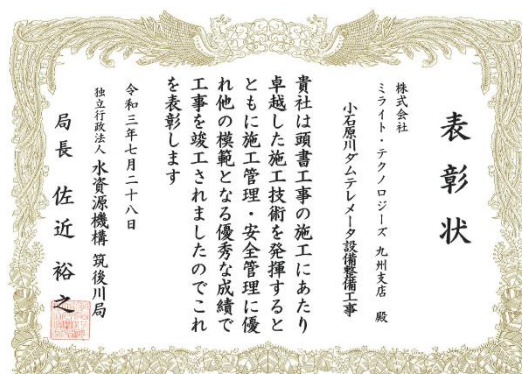 表彰状
株式会社
ミライト・テクノロジーズ 九州支店 殿
小石原川ダムテレメータ設備整備工事
貴社は頭書工事の施工にあたり
卓越した施工技術を発揮すると
ともに施工管理・安全管理に優
れ他の模範となる優秀な成績で
工事を竣工されましたのでこれ
を表彰します
令和三年七月二十八日
独立行政法人 水資源機構 筑後川局
局長 佐近 裕之